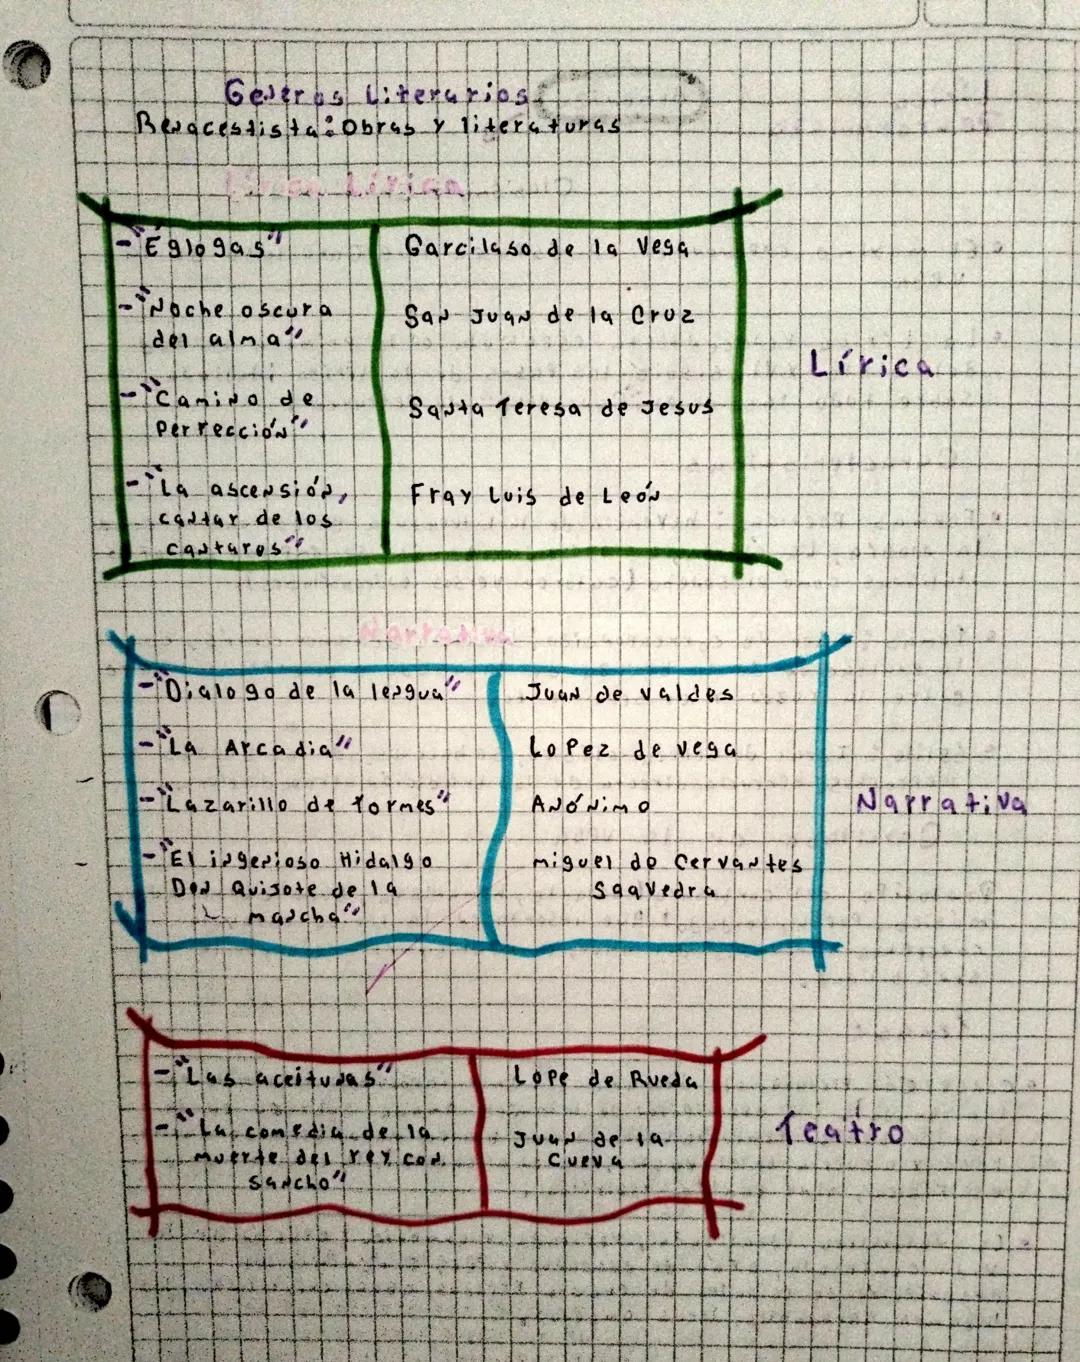 Generos Literarios
Renacentista: Obras y literaturas
Lírica
-"Églogas" Garcilaso de la Vega
-"Noche oscura San Juan de la Cruz
del alma"
Lírica
-"Camino de Santa Teresa de Jesus
Perfección"
-"La ascensión, Fray Luis de León
cantar de los
cantares"
Narrativa
-"Dialogo de la lengua" Juan de Valdes
-"La Arcadia" Lopez de vega
-"Lazarillo de tormes" Anónimo
Narrativa
-"El ingenioso Hidalgo miguel de Cervantes
Don Quijote de la Saavedra
mancha"
-"Las aceitunas" Lope de Rueda
-"La comedia de la Juan de la
muerte del rey con Cueva
Sancho"
Teatro